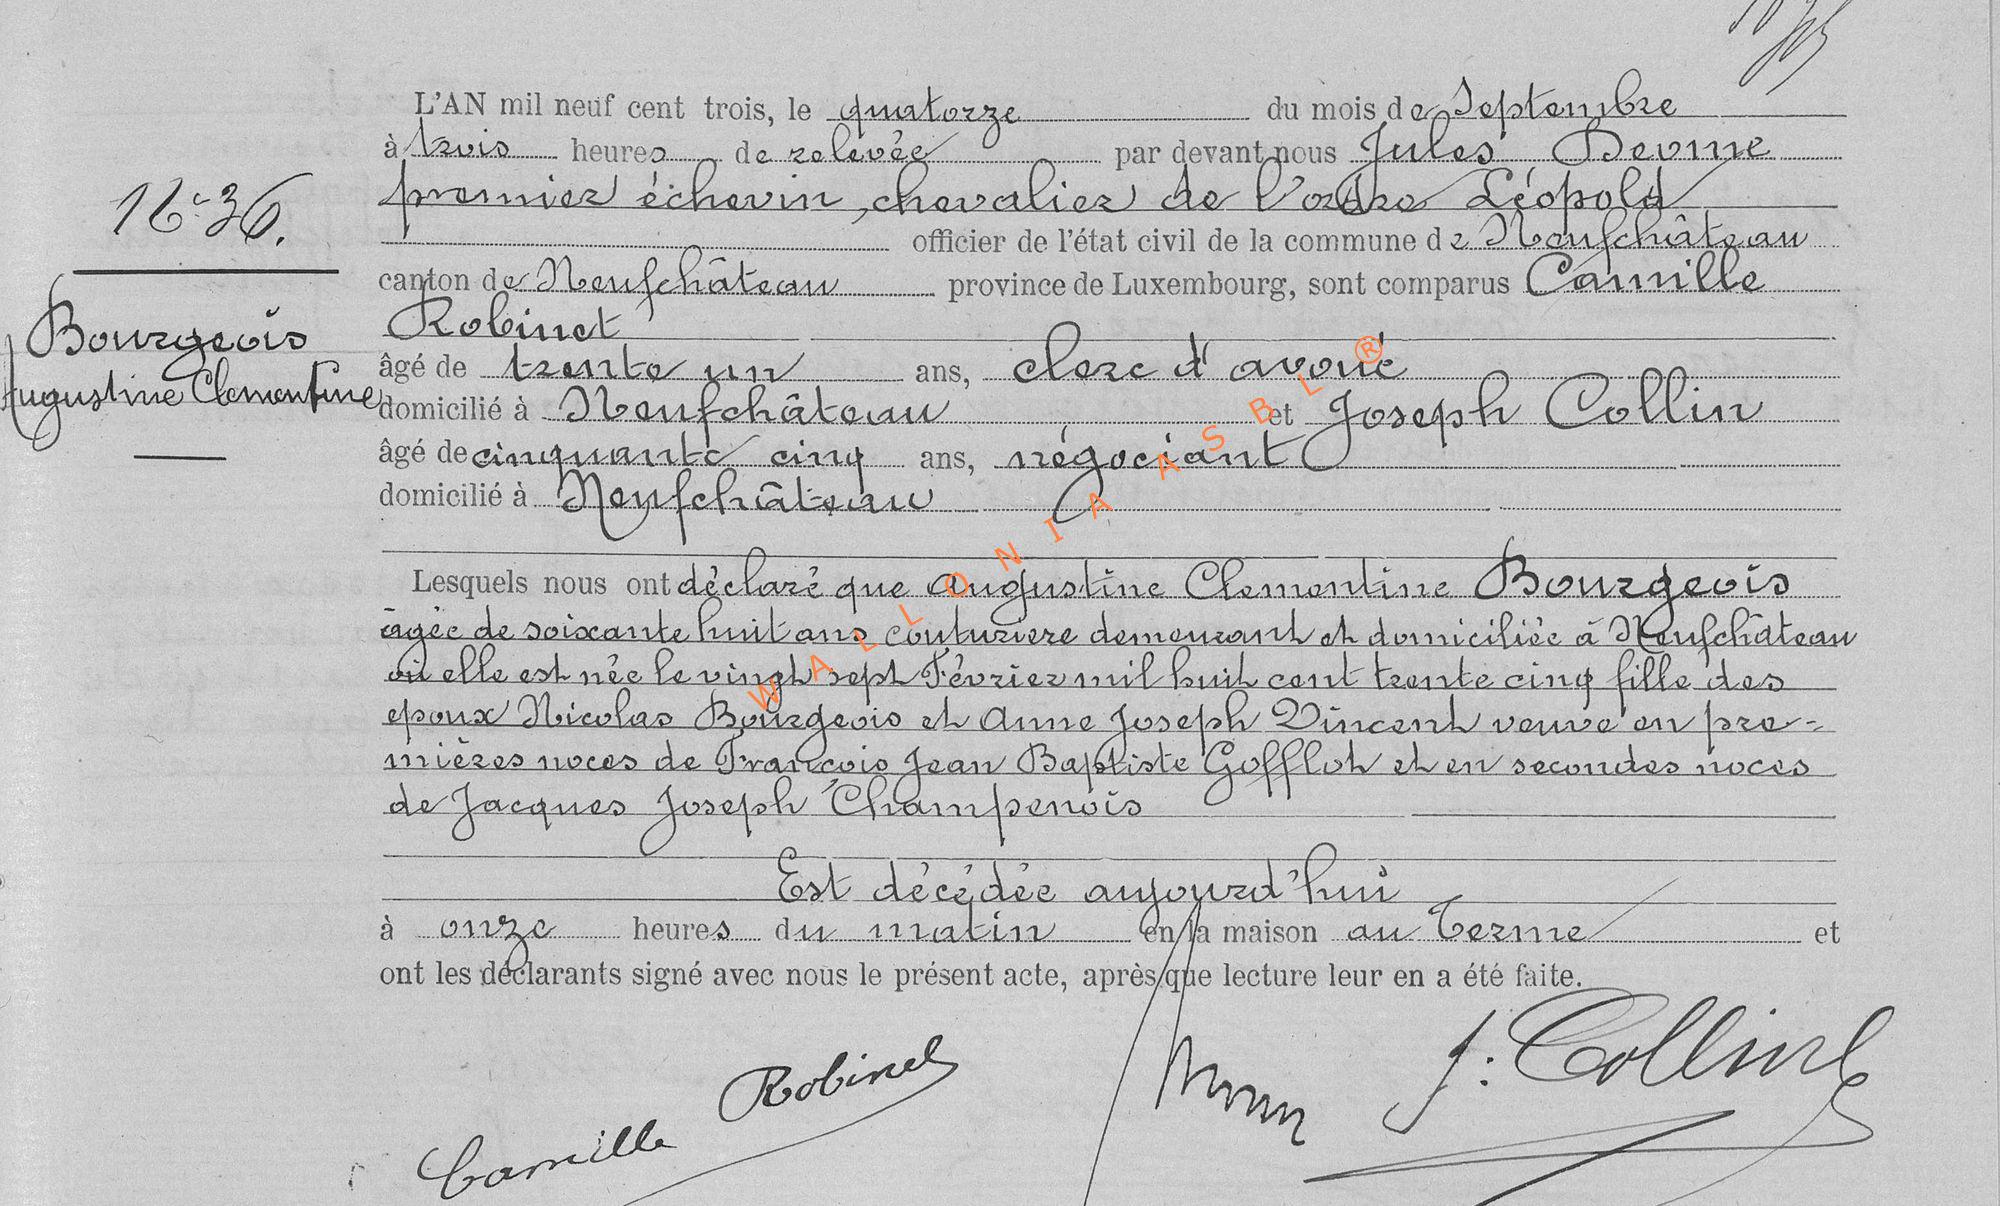 L'AN mil neuf cent trois, le quatorze du mois de Septembre
à trois heures de relevée par devant nous Jules
premier échevin, chevalier de l'ordre Léopold
N° 36.
officier de l'état civil de la commune de Neufchâteau
canton de Neufchâteau province de Luxembourg, sont comparus Camille
Robinet
Bourgeois
Augustine Clementine
âgé de trente un ans, clerc d'avoué
domicilié à Neufchâteau et Joseph Collin
âgé de cinquante cinq ans, négociant
domicilié à Neufchâteau
WALLONIA ASBL ®
Lesquels nous ont déclaré que Augustine Clementine Bourgeois
âgée de soixante huit ans couturiere demeurant et domiciliée à Neufchâteau
où elle est née le vingt sept Février mil huit cent trente cinq fille des
epoux Nicolas Bourgeois et Anne Joseph Vincent veuve en pre-
mières noces de François Jean Baptiste Gofflot et en secondes noces
de Jacques Joseph Champenois
Est décédée aujourd'hui
à onze heures du matin en la maison au Terme et
ont les déclarants signé avec nous le présent acte, après que lecture leur en a été faite.
Camille Robinet
J. Collin